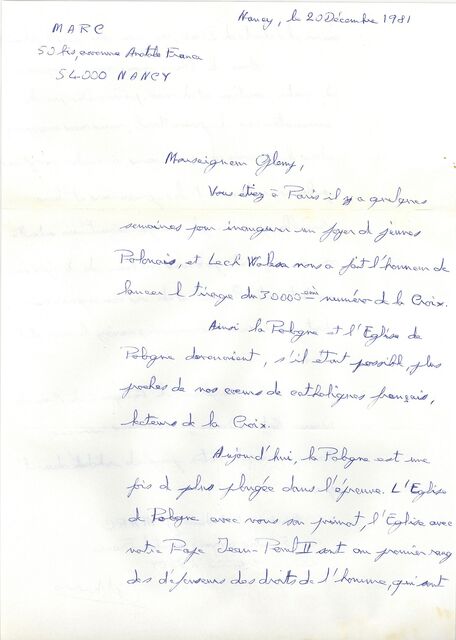 Nancy, le 20 Décembre 1981
MARC
50 bis, avenue Anatole France
54000 NANCY
Monseigneur Glemp,
Vous étiez à Paris il y a quelques
semaines pour inaugurer un foyer de jeunes
Polonais, et Lech Walesa nous a fait l'honneur de
lancer le tirage du 30000ème numéro de la Croix.
Ainsi la Pologne et l'Eglise de
Pologne devenaient, s'il était possible, plus
proches de nos coeurs de catholiques français,
lecteurs de la Croix.
Aujourd'hui, la Pologne est une
fois de plus plongée dans l'épreuve. L'Eglise
de Pologne avec vous son primat, l'Eglise avec
notre Pape Jean-Paul II sont au premier rang
des défenseurs des droits de l'homme, qui sont